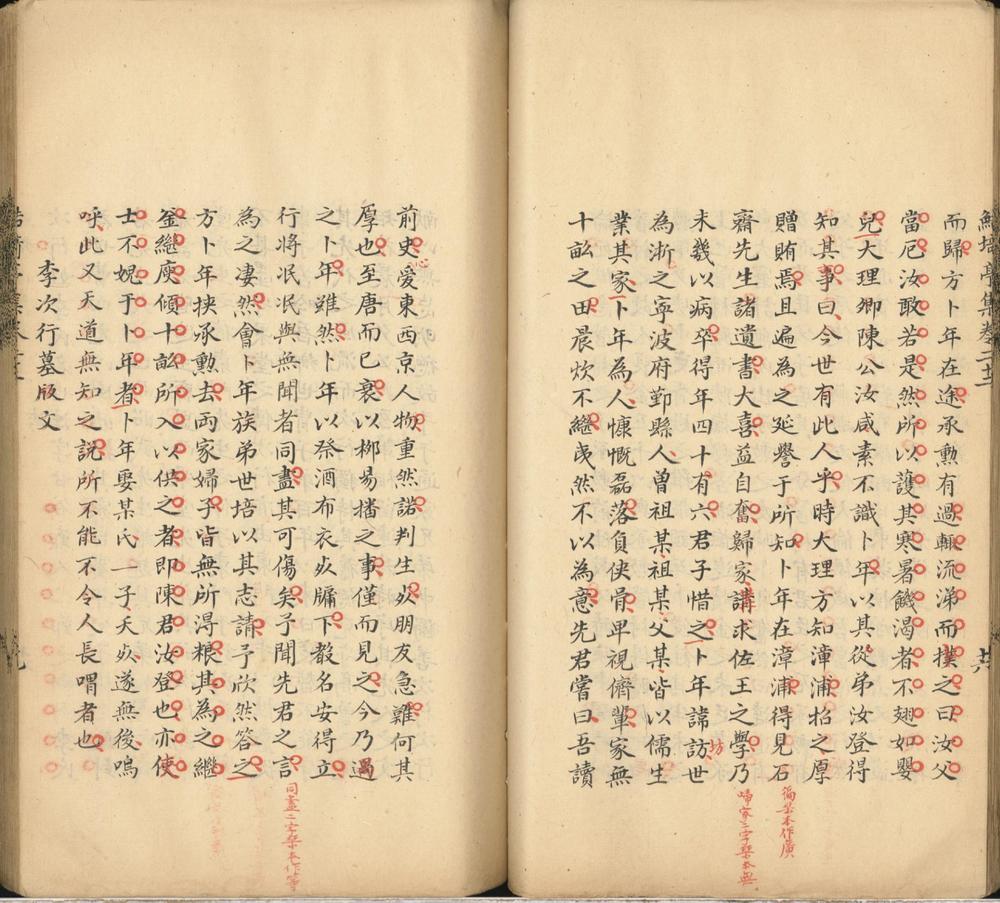 鮚埼亭集卷二十二
而歸方卜年在途承勳有過輒流涕而撲之曰汝父
當厄汝敢若是然所以護其寒暑饑渴者不翅如嬰
兒大理卿陳公汝咸素不識卜年以其從弟汝登得
知其事曰今世有此人乎時大理方知漳浦招之厚
贈賄焉且遍為之延譽于所知卜年在漳浦得見石
齋先生諸遺書大喜益自奮歸家講求佐王之學乃
未幾以病卒得年四十有六君子惜之卜年諱訪世
為浙之寧波府鄞縣人曾祖某祖某父某皆以儒生
業其家卜年為人慷慨磊落負俠骨卑視儕輩家無
十畝之田晨炊不繼夷然不以為意先君嘗曰吾讀
坊
徧某本作廣
歸家二字槧本無
前史愛東西京人物重然諾判生死朋友急難何其
厚也至唐而已衰以柳易播之事僅而見之今乃遇
之卜年雖然卜年以祭酒布衣死牖下教名安得立
行將泯泯與無聞者同盡其可傷矣予聞先君之言
為之凄然會卜年族弟世培以其志請予欣然答之
方卜年挾承勳去両家婦子皆無所得粮其為之繼
釜繼庾傾十畝所入以供之者即陳君汝登也亦使
士不媿于卜年者卜年娶某氏一子夭死遂無後嗚
呼此又天道無知之說所不能不令人長喟者也
李次行墓版文
心
同盡二字槧本作等